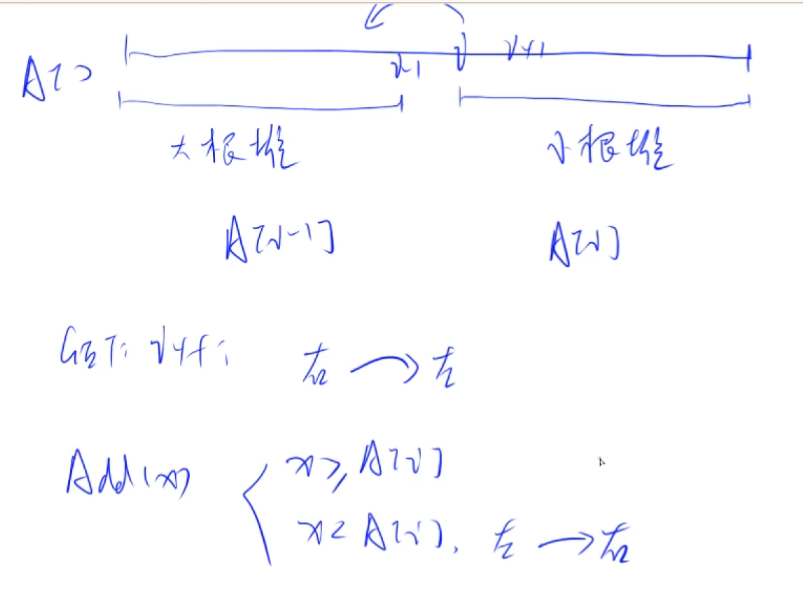 A[]
i-1 i i+1
大根堆 小根堆
A[i-1] A[i]
GET: i++; 右 → 左
Add(x)
x ≥ A[i]
x < A[i], 左 → 右